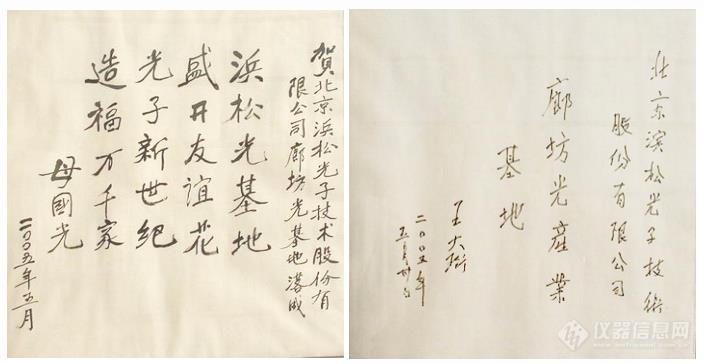 賀北京浜松光子技术股份有
限公司廊坊光基地落成
浜松光基地
盛开友谊花
光子新世纪
造福万千家
母國光
二〇〇五年五月
北京滨松光子技術
股份有限公司
廊坊光産業
基地
王大珩
二〇〇五年
五月廿日
仪器信息网
www.instrument.com.cn